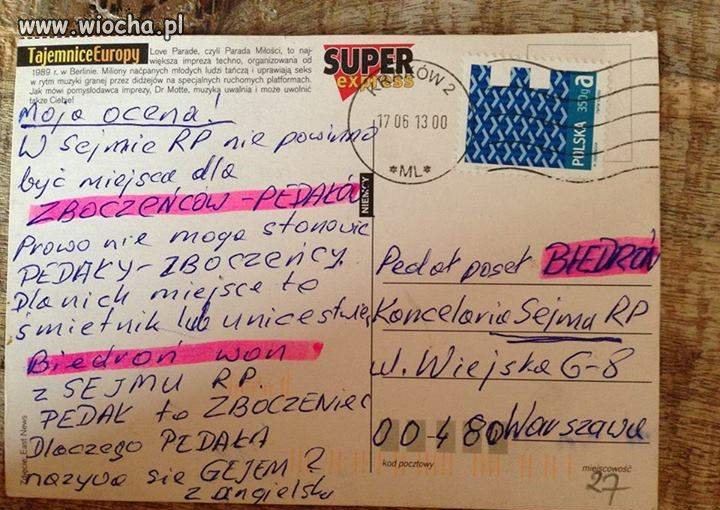 www.wiocha.pl
TajemniceEuropy Love Parade, czyli Parada Miłości, to naj-
większa impreza techno, organizowana od
1989 r. w Berlinie. Miliony naćpanych młodych ludzi tańczą i uprawiają seks
w rytm muzyki granej przez didżejów na specjalnych ruchomych platformach.
Jak mówi pomysłodawca imprezy, Dr Motte, muzyka uwalnia i może uwolnić
także Ciebie!
SUPER
express
Moja ocena!
W Sejmie RP nie powinno
być miejsca dla
ZBOCZEŃCÓW-PEDAŁÓW
Prawo nie mogą stanowić
PEDAŁY-ZBOCZEŃCY.
Dla nich miejsce to
śmietnik lub unicestwie
Biedroń won
z SEJMU RP.
PEDAŁ to ZBOCZENIEC
Dlaczego PEDAŁA
nazywa się GEJEM?
z angielska
Zdjęcie: East News
NIEMCY
KRAKÓW 2
17 06 13 00
*ML*
POLSKA 350g A
Pedał poseł BIEDROŃ
Kancelaria Sejmu RP
ul. Wiejska 6-8
00-480 Warszawa
kod pocztowy
miejscowość
27